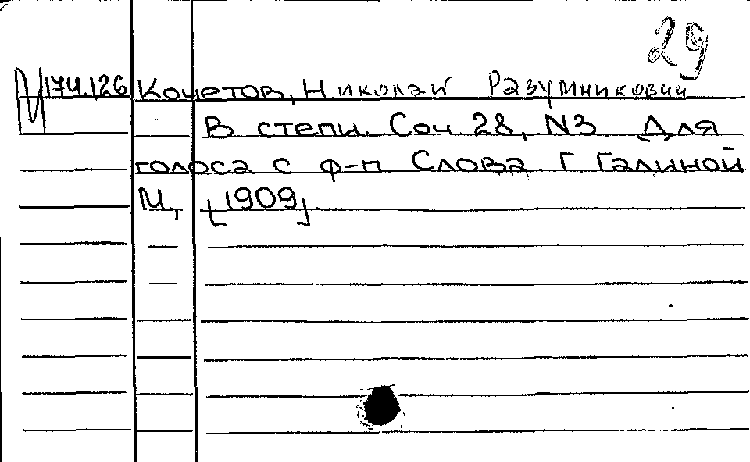 29
М174.126 Кочетов, Николай Разумникович
В степи. Соч 28, N3. Для
голоса с ф-п Слова Г Галиной
М, [1909]